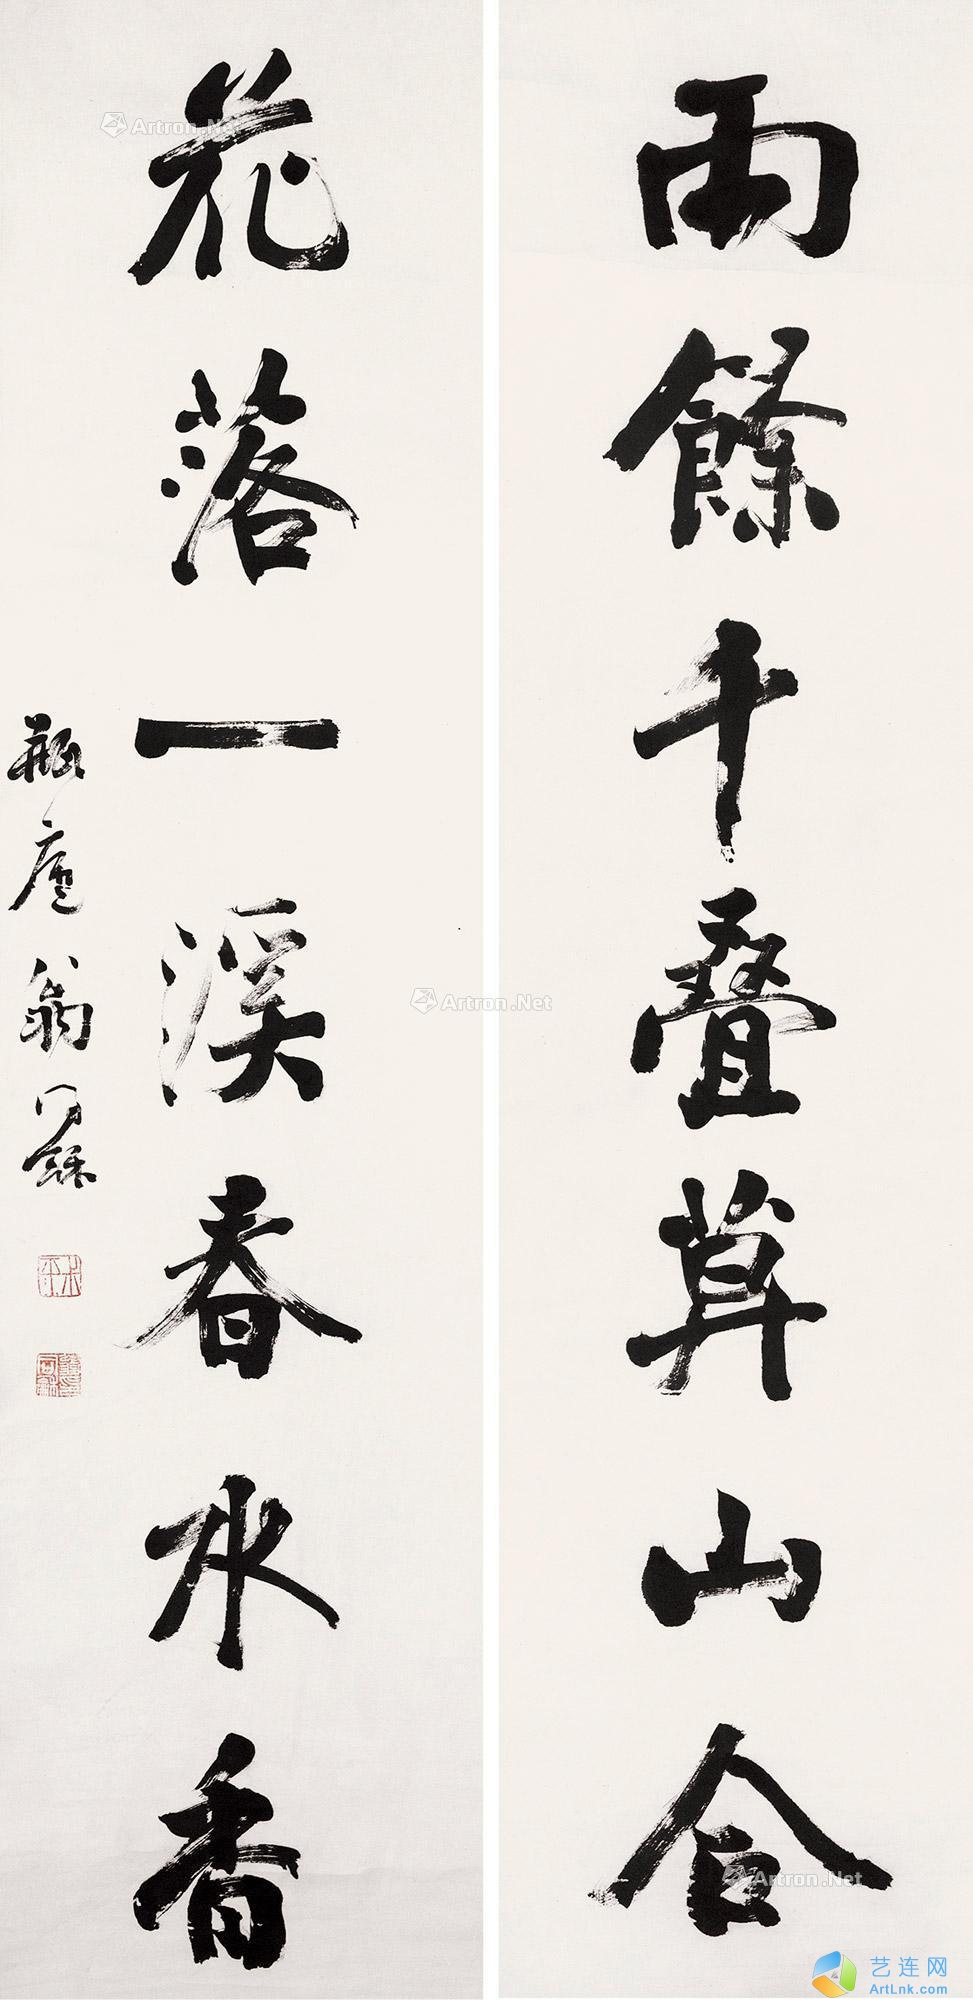 雨餘千叠草山合
花落一溪春水香
瓶廬翁同龢
Artron.Net
Artron.Net
Artron.Net
艺连网
ArtLnk.com